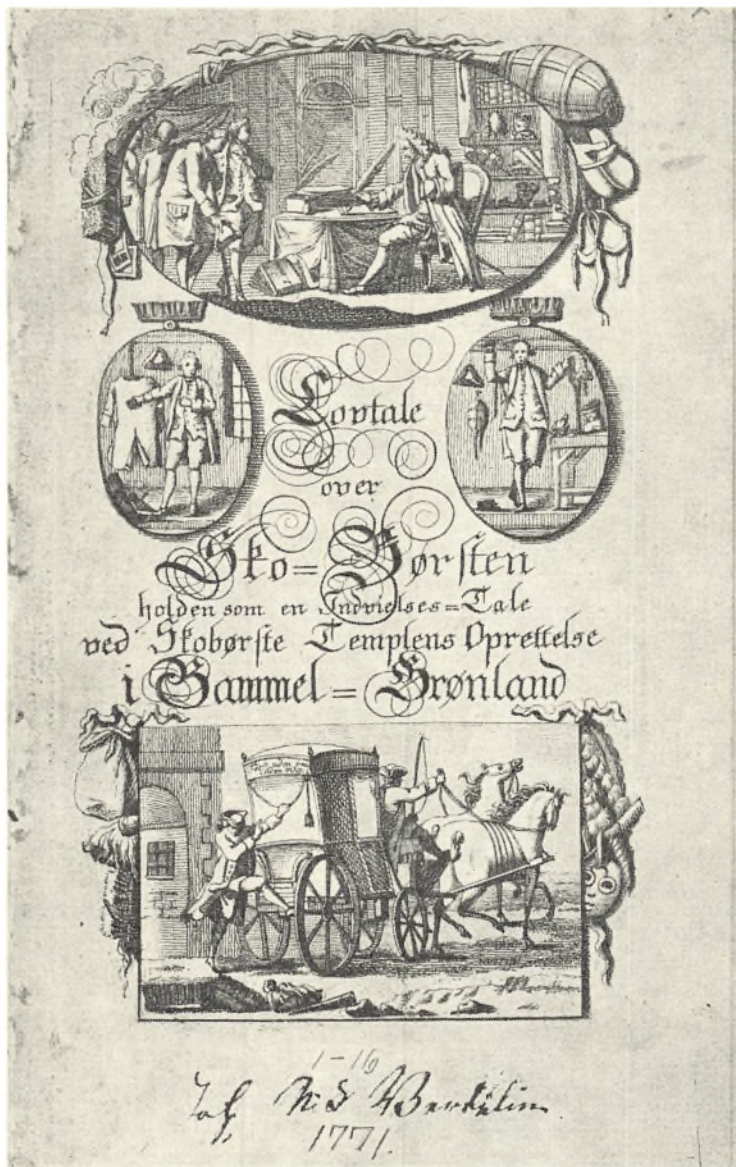 Lovtale
over
Sko=Børsten
holden som en Indvielses=Tale
ved Skobørste Templens Oprettelse
i Gammel=Grønland
1-16
Joh. Nic
1771.